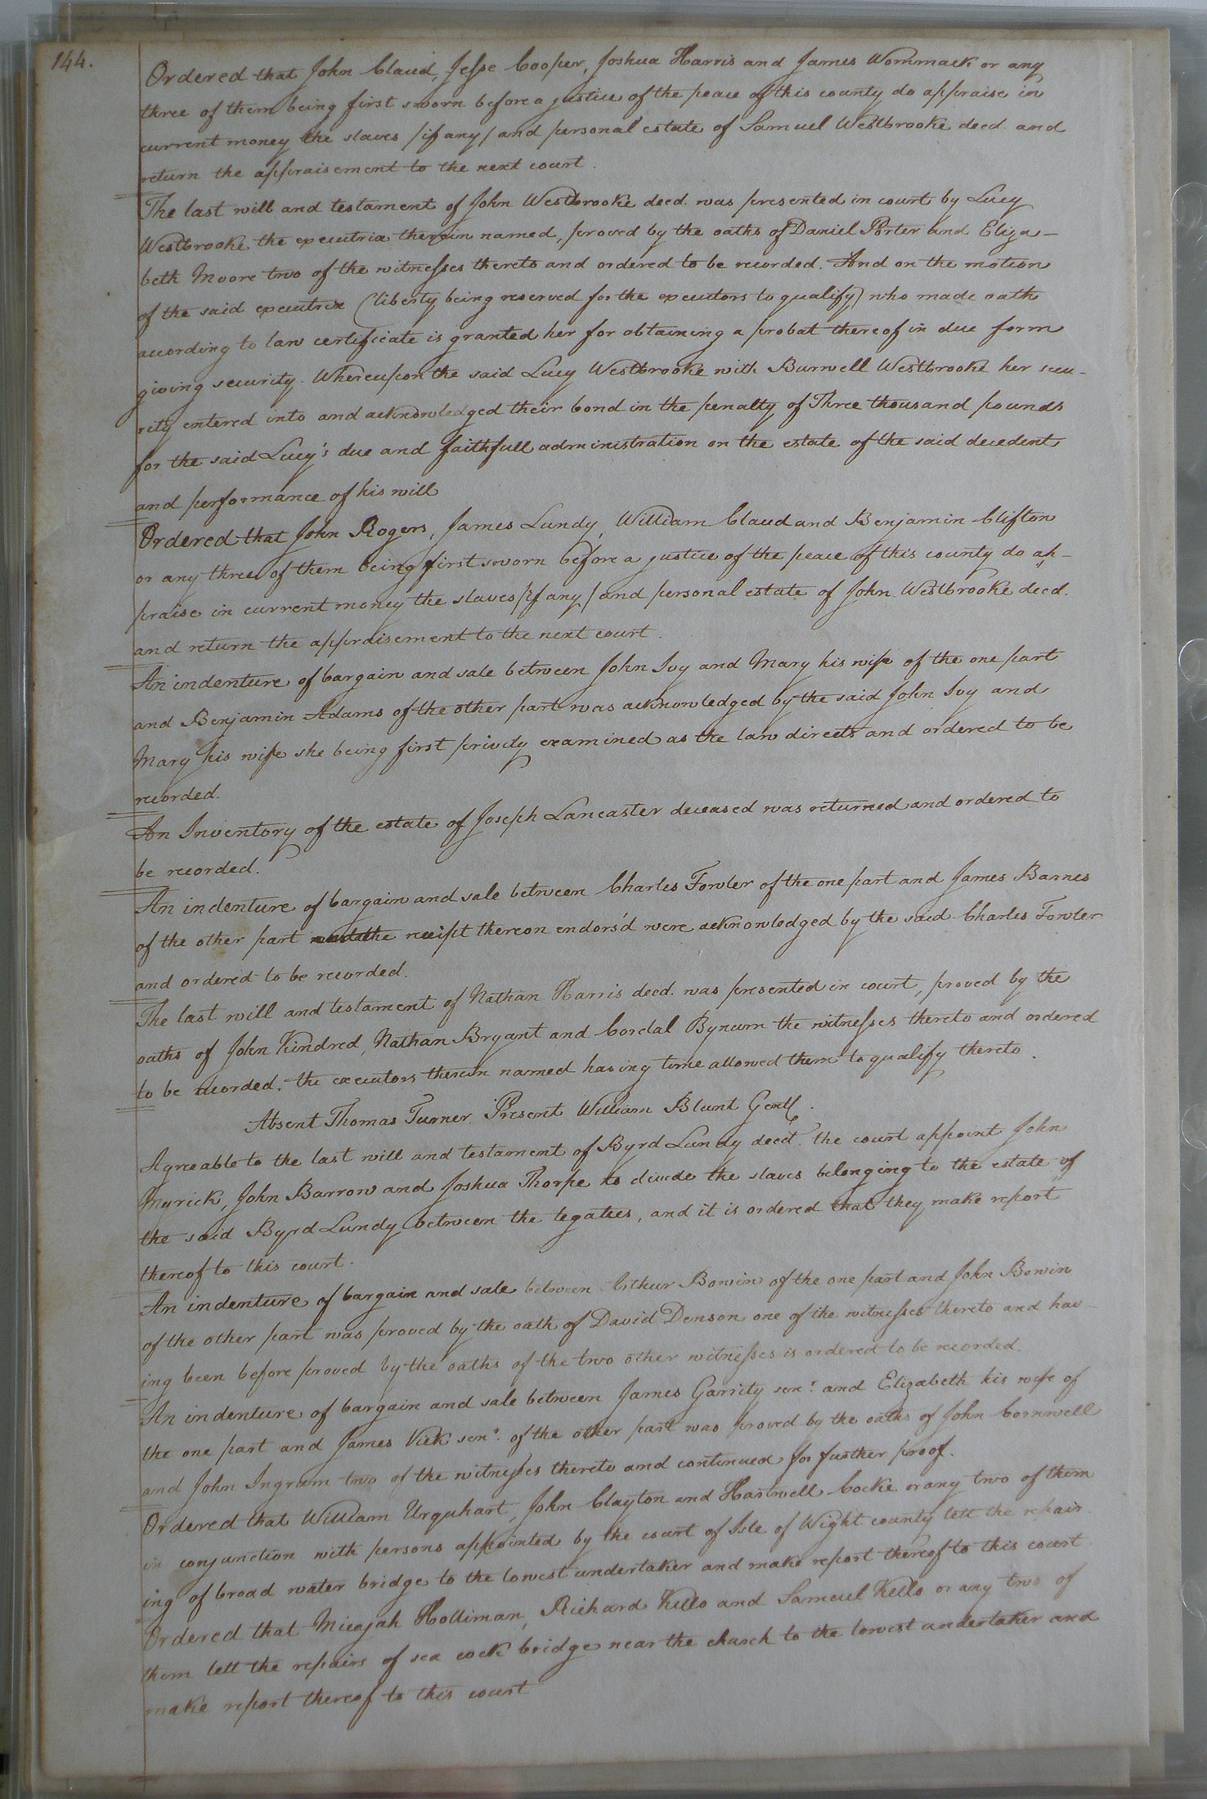 144.
Ordered that John Claud, Jesse Cooper, Joshua Harris and James Wommack or any
three of them being first sworn before a justice of the peace of this county do appraise in
current money the slaves /if any/ and personal estate of Samuel Westbrooke deed. and
return the appraisement to the next court.
The last will and testament of John Westbrooke deed. was presented in court by Lucy
Westbrooke the executrix therein named, proved by the oaths of Daniel Porter and Eliza-
beth Moore two of the witnesses thereto and ordered to be recorded. And on the motion
of the said executrix (liberty being reserved for the executors to qualify) who made oath
according to law certificate is granted her for obtaining a probat thereof in due form
giving security. Whereupon the said Lucy Westbrooke with Burwell Westbrooke her secu-
rity entered into and acknowledged their bond in the penalty of Three thousand pounds
for the said Lucy's due and faithfull administration on the estate of the said decedent
and performance of his will
Ordered that John Rogers, James Lundy, William Claud and Benjamin Clifton
or any three of them being first sworn before a justice of the peace of this county do ap-
praise in current money the slaves /if any/ and personal estate of John Westbrooke deed.
and return the appraisement to the next court.
An indenture of bargain and sale between John Ivy and Mary his wife of the one part
and Benjamin Adams of the other part was acknowledged by the said John Ivy and
Mary his wife she being first privily examined as the law directs and ordered to be
recorded.
An Inventory of the estate of Joseph Lancaster deceased was returned and ordered to
be recorded.
An indenture of bargain and sale between Charles Fowler of the one part and James Barnes
of the other part and the receipt thereon endors'd were acknowledged by the said Charles Fowler
and ordered to be recorded.
The last will and testament of Nathan Harris deed. was presented in court, proved by the
oaths of John Kindred, Nathan Bryant and Cordal Bynum the witnesses thereto and ordered
to be recorded. the executors therein named having time allowed them to qualify thereto.
Absent Thomas Turner Present William Blunt Gentl.
Agreeable to the last will and testament of Byrd Lundy deed. the court appoint John
Myrick, John Barrow and Joshua Thorpe to divide the slaves belonging to the estate of
the said Byrd Lundy between the legatees, and it is ordered that they make report
thereof to this court.
An indenture of bargain and sale between Arthur Bowin of the one part and John Bowin
of the other part was proved by the oath of David Denson one of the witnesses thereto and hav-
ing been before proved by the oaths of the two other witnesses is ordered to be recorded.
An indenture of bargain and sale between James Garrity senr. and Elizabeth his wife of
the one part and James Vick senr. of the other part was proved by the oaths of John Cornwell
and John Ingram two of the witnesses thereto and continued for further proof.
Ordered that William Urquhart, John Clayton and Hartwell Cocke or any two of them
in conjunction with persons appointed by the court of Isle of Wight county lett the repair
ing of broad water bridge to the lowest undertaker and make report thereof to this court
Ordered that Micajah Holliman, Richard Kello and Samuel Kello or any two of
them lett the repairs of sea cock bridge near the church to the lowest undertaker and
make report thereof to this court